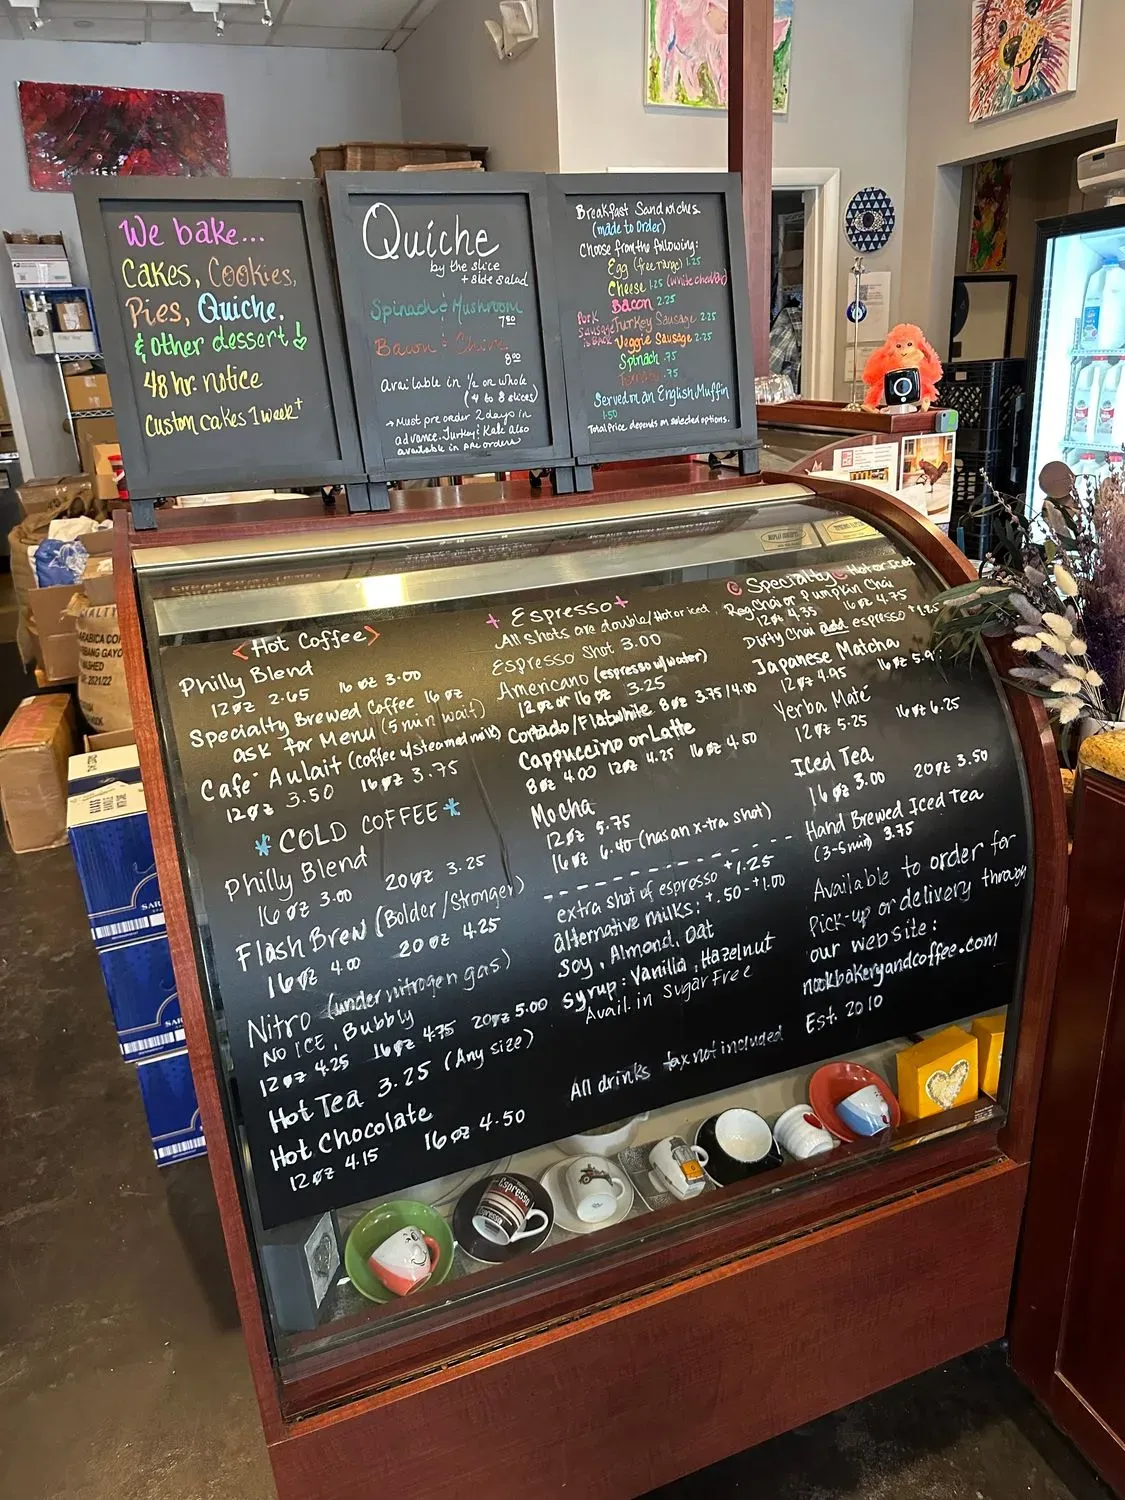 We bake...
Cakes, Cookies,
Pies, Quiche.
& other dessert!
48 hr notice
Custom cakes 1 week+
Quiche
by the slice
+ side salad
Spinach & Mushroom
7.50
Bacon & Chive
8.00
Available in 1/2 or whole
(4 to 8 slices)
→ Must pre order 2 days in
advance. Turkey & Kale also
available in pre orders
Breakfast Sandwiches
(made to order)
Choose from the following:
Egg (free range) 1.25
Cheese 1.25 (white cheddar)
Bacon 2.25
Pork Sausage is BACK
Turkey Sausage 2.25
Veggie Sausage 2.25
Spinach .75
Tomato .75
Served on an English Muffin
1.50
Total Price depends on selected options.
<Hot Coffee>
Philly Blend
12oz 2.65 16oz 3.00
Specialty Brewed Coffee 16oz
ask for Menu (5 min wait)
Café Aulait (coffee w/steamed milk)
12oz 3.50 16oz 3.75
*COLD COFFEE*
Philly Blend
16oz 3.00 20oz 3.25
Flash Brew (Bolder/Stronger)
16oz 4.00 20oz 4.25
Nitro (under nitrogen gas)
NO ICE, Bubbly
12oz 4.25 16oz 4.75 20oz 5.00
Hot Tea 3.25 (Any size)
Hot Chocolate
12oz 4.15 16oz 4.50
+ Espresso +
All shots are double/Hot or iced
Espresso Shot 3.00
Americano (espresso w/water)
12oz or 16oz 3.25
Cortado/Flatwhite 8oz 3.75/4.00
Cappuccino or Latte
8oz 4.00 12oz 4.25 16oz 4.50
Mocha
12oz 5.75
16oz 6.40 (has an x-tra shot)
extra shot of espresso +1.25
alternative milks: +.50-+1.00
Soy, Almond, Oat
Syrup: Vanilla, Hazelnut
Avail. in Sugar Free
All drinks tax not included
Specialty Hot or Iced
Reg Chai or Pumpkin Chai
12oz 4.35 16oz 4.75
Dirty Chai add espresso +1.25
Japanese Matcha
12oz 4.95 16oz 5.9
Yerba Maté
12oz 5.25 16oz 6.25
Iced Tea
16oz 3.00 20oz 3.50
Hand Brewed Iced Tea
(3-5 min) 3.75
Available to order for
Pick-up or delivery through
our website:
nookbakeryandcoffee.com
Est. 2010
Espresso